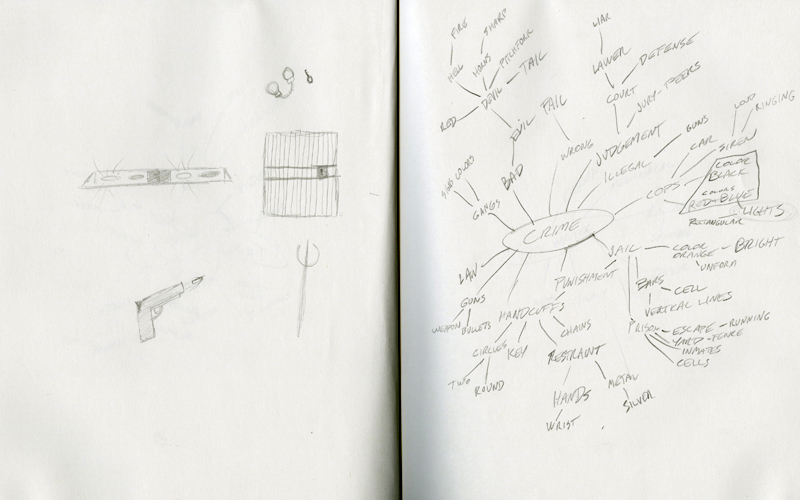 FIRE
SHARP
LIAR
HELL
HORNS
PITCHFORK
LAWER
DEFENSE
RED
DEVIL
TAIL
COURT
JURY - PEERS
EVIL
FAIL
WRONG
JUDGEMENT
GUNS
LOUD
RINGING
CAR
SIREN
ILLEGAL
COLORS
BAD
COPS
COLOR
BLACK
COLORS
RED - BLUE
RECTANGULAR
LIGHTS
GANGS
CRIME
LAW
JAIL
COLOR
ORANGE
BRIGHT
UNFORM
PUNISHMENT
BARS
CELL
VERTICAL LINES
GUNS
WEAPON
BULLETS
HANDCUFFS
CHAINS
PRISON
ESCAPE - RUNNING
YARD - FENCE
INMATES
CELLS
CIRCLES
KEY
RESTRAINT
TWO
ROUND
HANDS
METAL
SILVER
WRIST